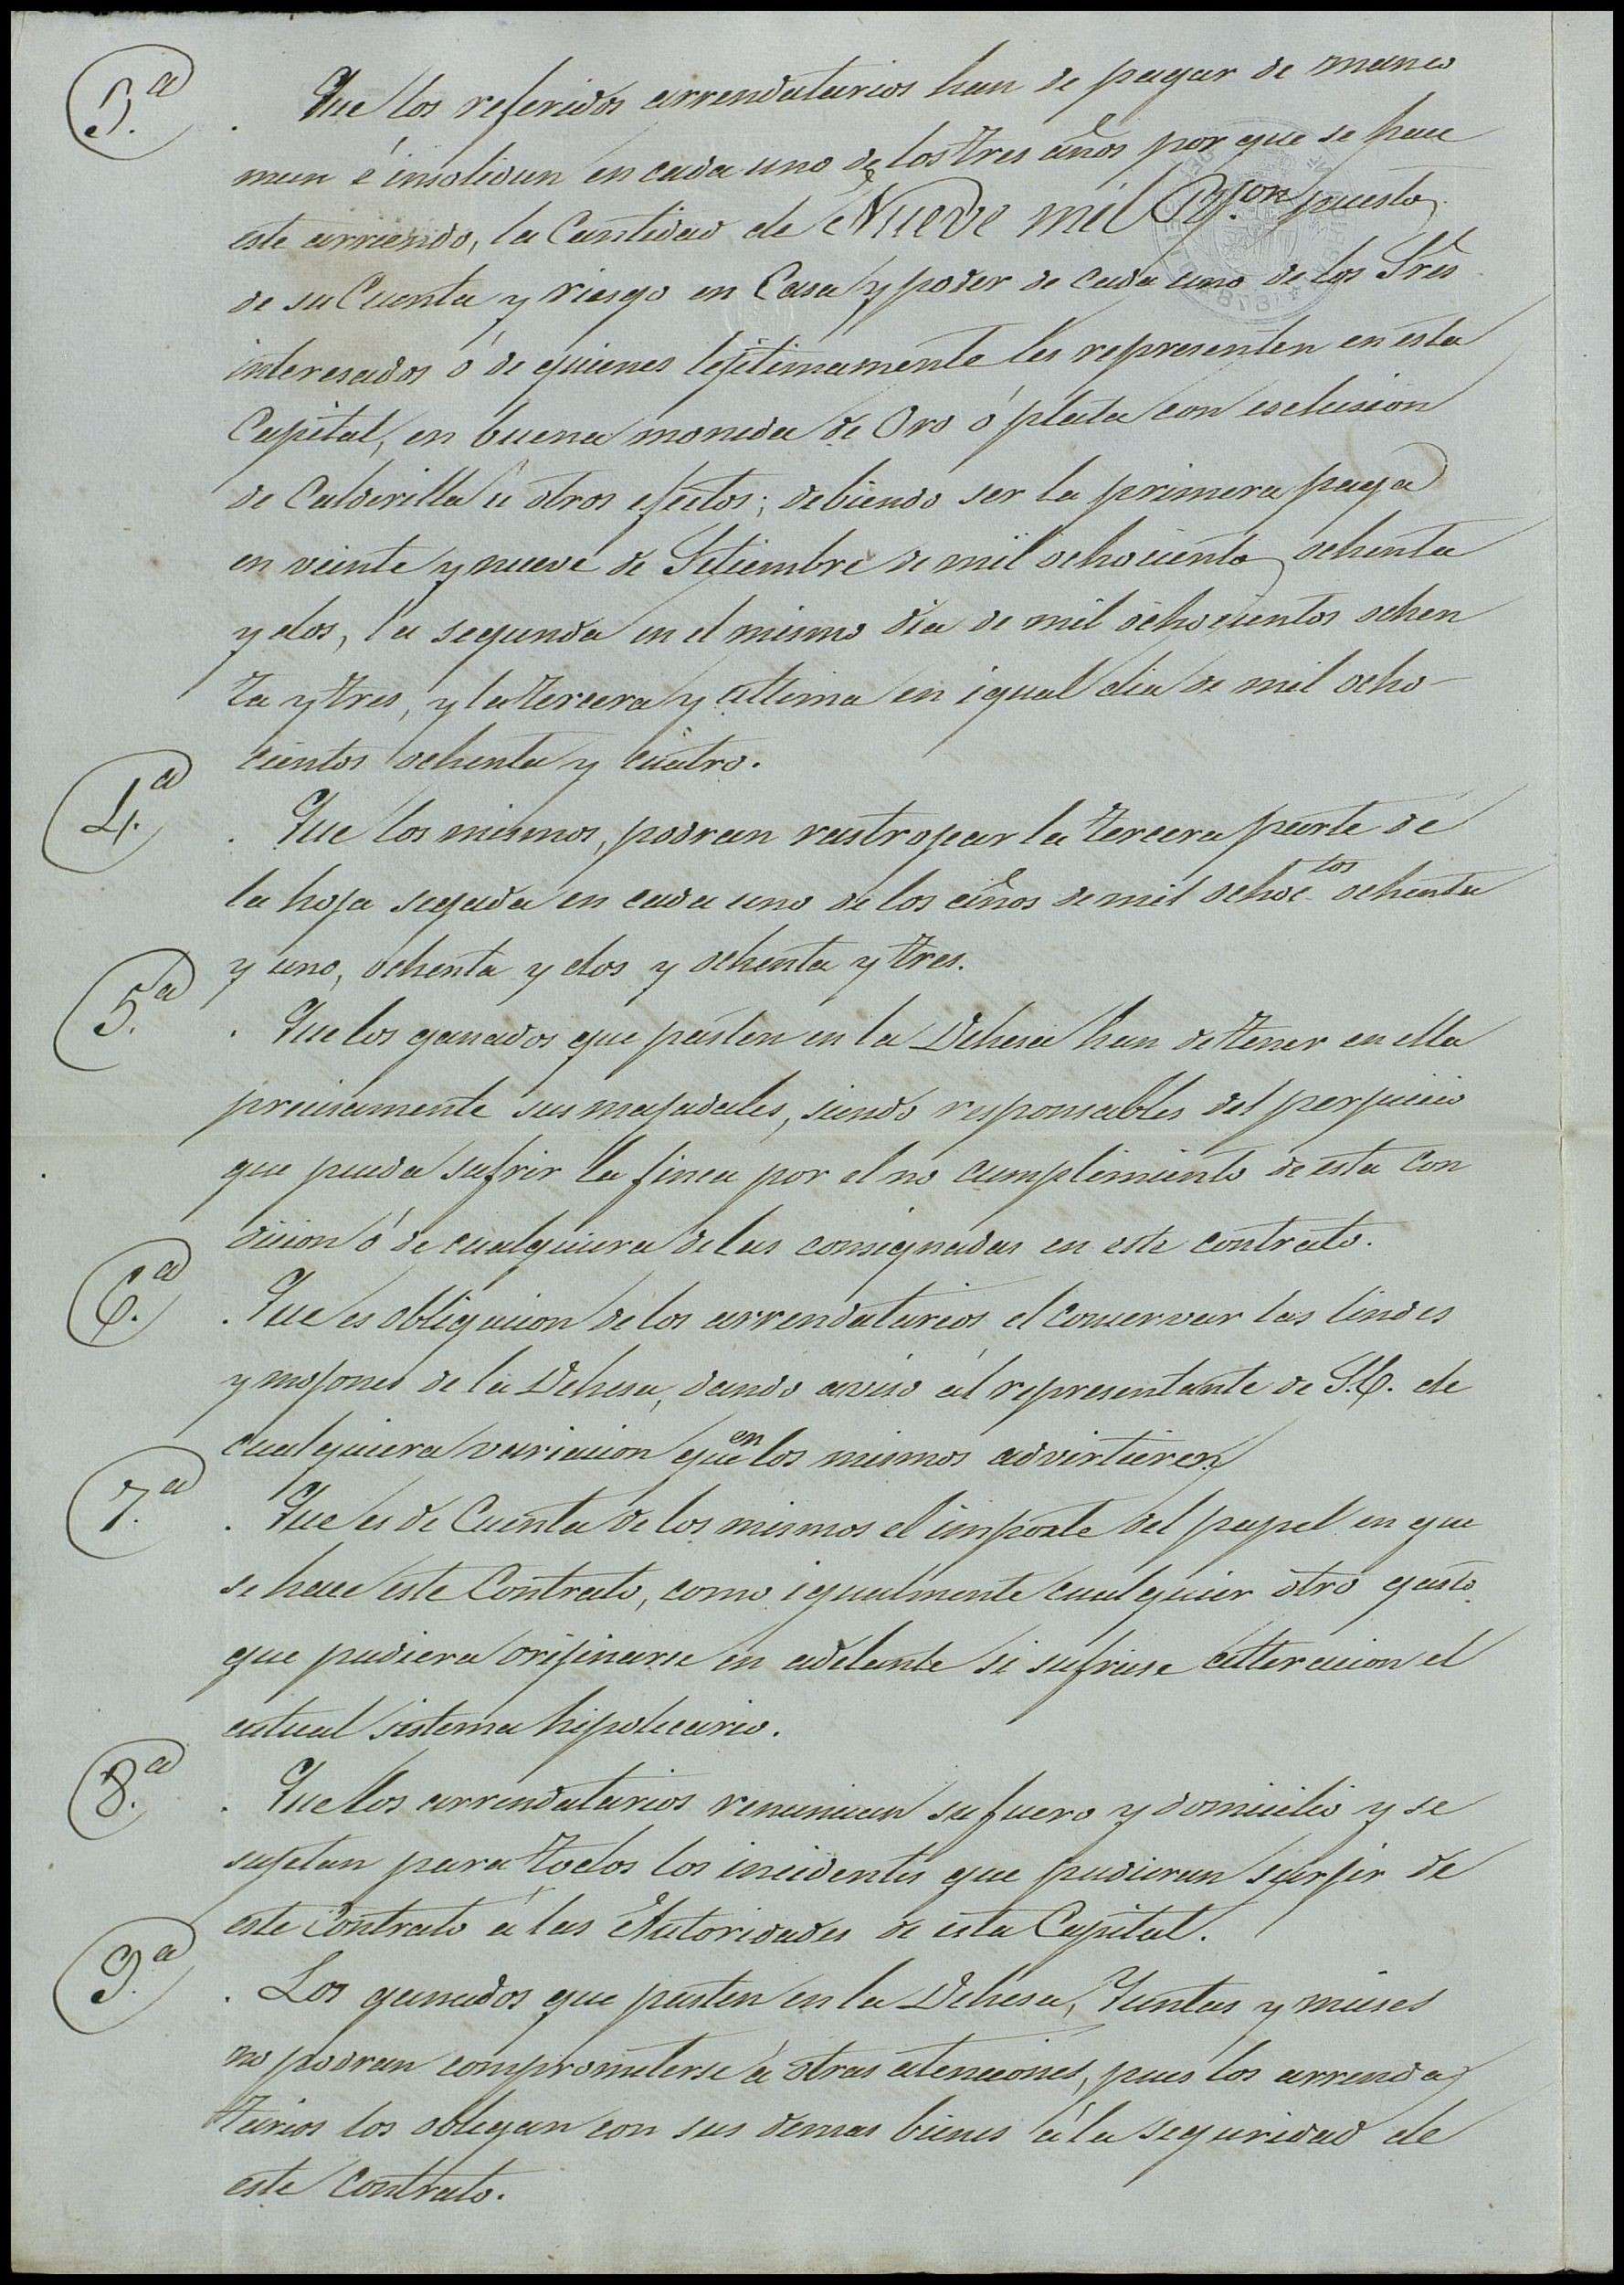 3.ª . Que los referidos arrendatarios han de pagar de manco
mun é insolidun en cada uno de los tres años por que se hace
este arriendo, la Cantidad de Nueve mil puestos
de su Cuenta y riesgo en Casa y poder de cada uno de los Sres
interesados ó de quienes lejitimamente les representen en esta
Capital, en buena moneda de Oro ó plata con esclusion
de Calderilla ú otros efectos; debiendo ser la primera paga
en veinte y nueve de Setiembre de mil ochocientos ochenta
y dos, la segunda en el mismo dia de mil ochocientos ochen
ta y tres, y la tercera y ultima en igual dia de mil ocho-
cientos ochenta y cuatro.
4.ª . Que los mismos, podran rastropar la tercera parte de
la hoja segada en cada uno de los años de mil ochoc.tos ochenta
y uno, ochenta y dos y ochenta y tres.
5.ª . Que los ganados que pasten en la Dehesa han de tener en ella
precisamente sus majadales, siendo responsables del perjuicio
que pueda sufrir la finca por el no cumplimiento de esta con
dicion ó de cualquiera de las consignadas en este contrato.
6.ª . Que es obligacion de los arrendatarios el conservar las lindes
y mojones de la Dehesa, dando aviso al representante de S.E. de
cualquiera variacion que en los mismos advirtieren
7.ª . Que es de Cuenta de los mismos el importe del papel en que
se hace este Contrato, como igualmente cualquier otro gasto
que pudiera orijinarse en adelante si sufriese alteracion el
actual sistema hipotecario.
8.ª . Que los arrendatarios renuncian su fuero y domicilio y se
sujetan para todos los incidentes que pudieran surjir de
este Contrato á las Autoridades de esta Capital.
9.ª . Los ganados que pasten en la Dehesa, Yuntas y mieses
no podran comprometerse á otras atenciones, pues los arrenda
tarios los obligan con sus demas bienes á la seguridad de
este Contrato.